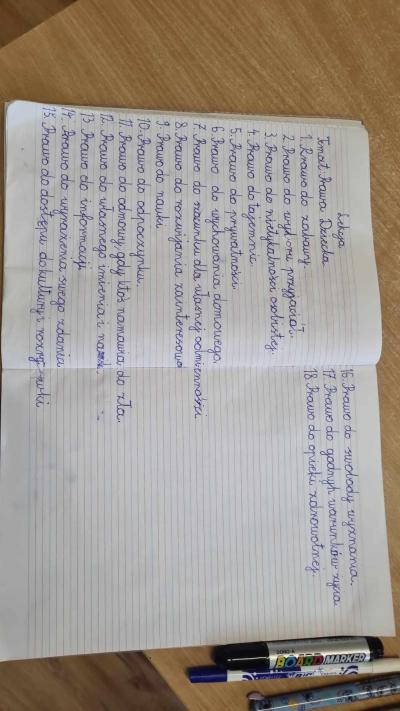 Lekcja
Temat: Prawa Dziecka
1. Prawo do zabawy.
2. Prawo do przyjaciół.
3. Prawo do nietykalności osobistej.
4. Prawo do tajemnic
5. Prawo do prywatności.
6. Prawo do wychowania domowego.
7. Prawo do szacunku dla własnej odmienności.
8. Prawo do rozwijania zainteresowa
9. Prawo do nauki
10. Prawo do odpoczynku.
11. Prawo do odmowy, gdy ktoś namawia do zła.
12. Prawo do własnego imienia i
13. Prawo do informacji
14. Prawo do wyrażania swego zdania
15. Prawo do dostępu do kultury i rozrywki
16. Prawo do swobody wyznania.
17. Prawo do godnych warunków życia
18. Prawo do opieki zdrowotnej.
BOARD MARKER